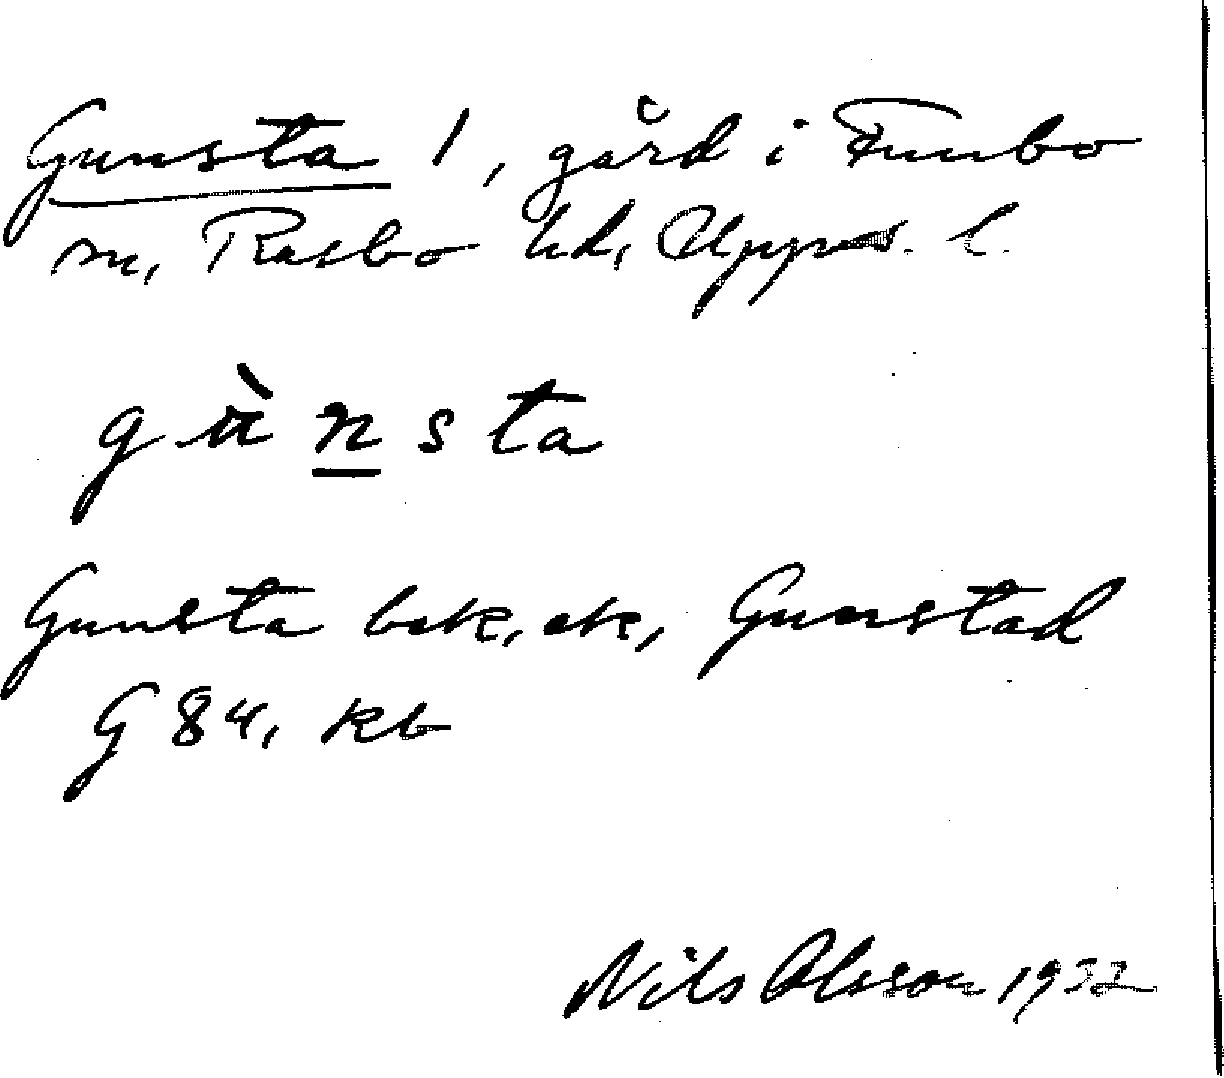 Gunsta 1, gård i Funbo
sn, Rasbo hd, Upps. l.
gùnsta
Gunsta bek, ek, Gunstad
G 84, kb
Nils Olsson 1932